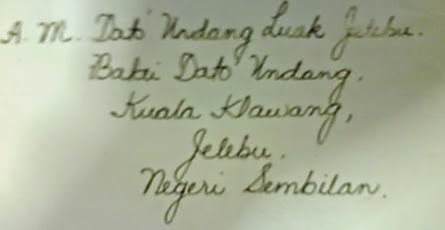 A. M. Dato' Undang Luak Jelebu.
Balai Dato' Undang,
Kuala Klawang,
Jelebu.
Negeri Sembilan.